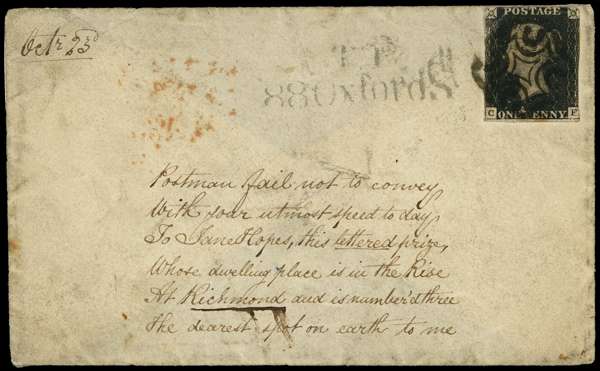 Octr 23d
POSTAGE
T.P
88 Oxford St
C F
ONE PENNY
Postman fail not to convey
With your utmost speed to day,
To Jane Hopes, this lettered prize,
Whose dwelling place is in the Rise
At Richmond and is number'd three
the dearest spot on earth to me